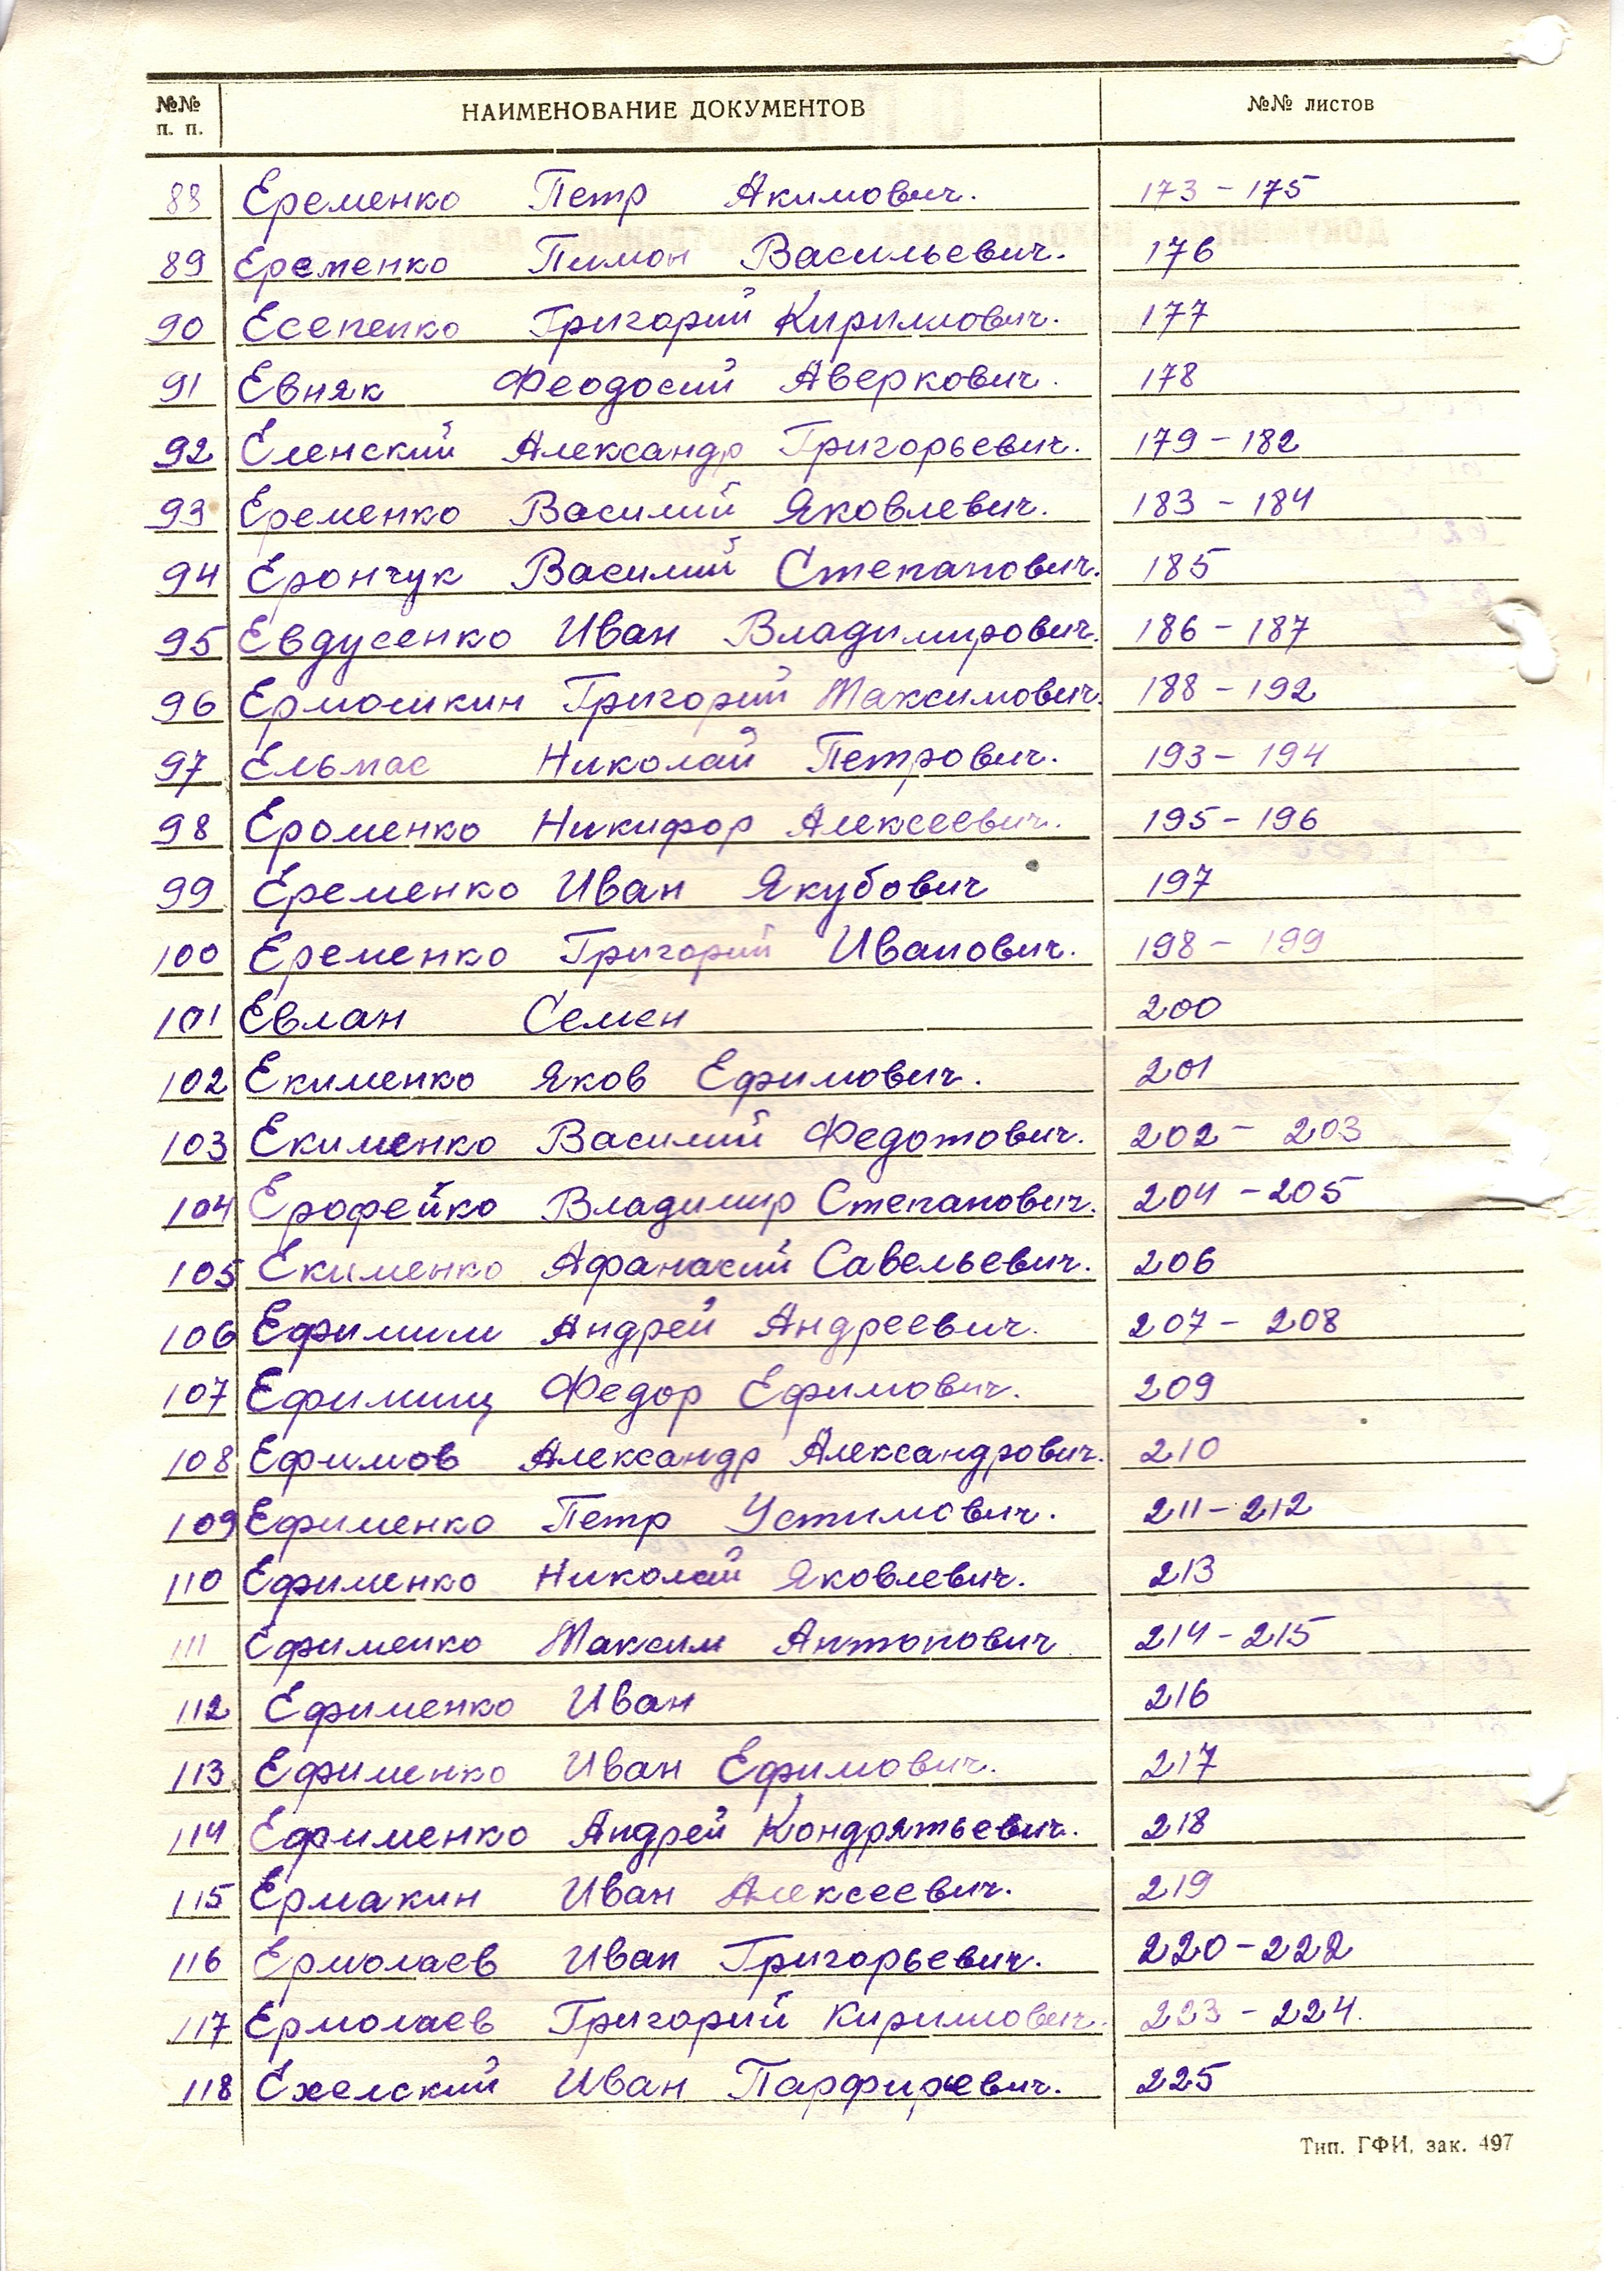 №№ п. п. НАИМЕНОВАНИЕ ДОКУМЕНТОВ №№ листов
88 Еременко Петр Акимович. 173 - 175
89 Еременко Пимон Васильевич. 176
90 Есепенко Григорий Кириллович. 177
91 Евняк Феодосий Аверкович. 178
92 Еленский Александр Григорьевич. 179 - 182
93 Еременко Василий Яковлевич. 183 - 184
94 Ерончук Василий Степанович. 185
95 Евдусенко Иван Владимирович. 186 - 187
96 Ермошкин Григорий Максимович. 188 - 192
97 Ельмас Николай Петрович. 193 - 194
98 Ероменко Никифор Алексеевич. 195 - 196
99 Еременко Иван Якубович 197
100 Еременко Григорий Иванович. 198 - 199
101 Евлан Семен 200
102 Екименко Яков Ефимович. 201
103 Екименко Василий Федотович. 202 - 203
104 Ерофейко Владимир Степанович. 204 - 205
105 Екименко Афанасий Савельевич. 206
106 Ефимим Андрей Андреевич. 207 - 208
107 Ефимищ Федор Ефимович. 209
108 Ефимов Александр Александрович. 210
109 Ефименко Петр Устимович. 211 - 212
110 Ефименко Николай Яковлевич. 213
111 Ефименко Максим Антонович 214 - 215
112 Ефименко Иван 216
113 Ефименко Иван Ефимович. 217
114 Ефименко Андрей Кондратьевич. 218
115 Ермакин Иван Алексеевич. 219
116 Ермолаев Иван Григорьевич. 220 - 222
117 Ермолаев Григорий Кириллович. 223 - 224.
118 Ехелский Иван Парфиревич. 225
Тип. ГФИ, зак. 497